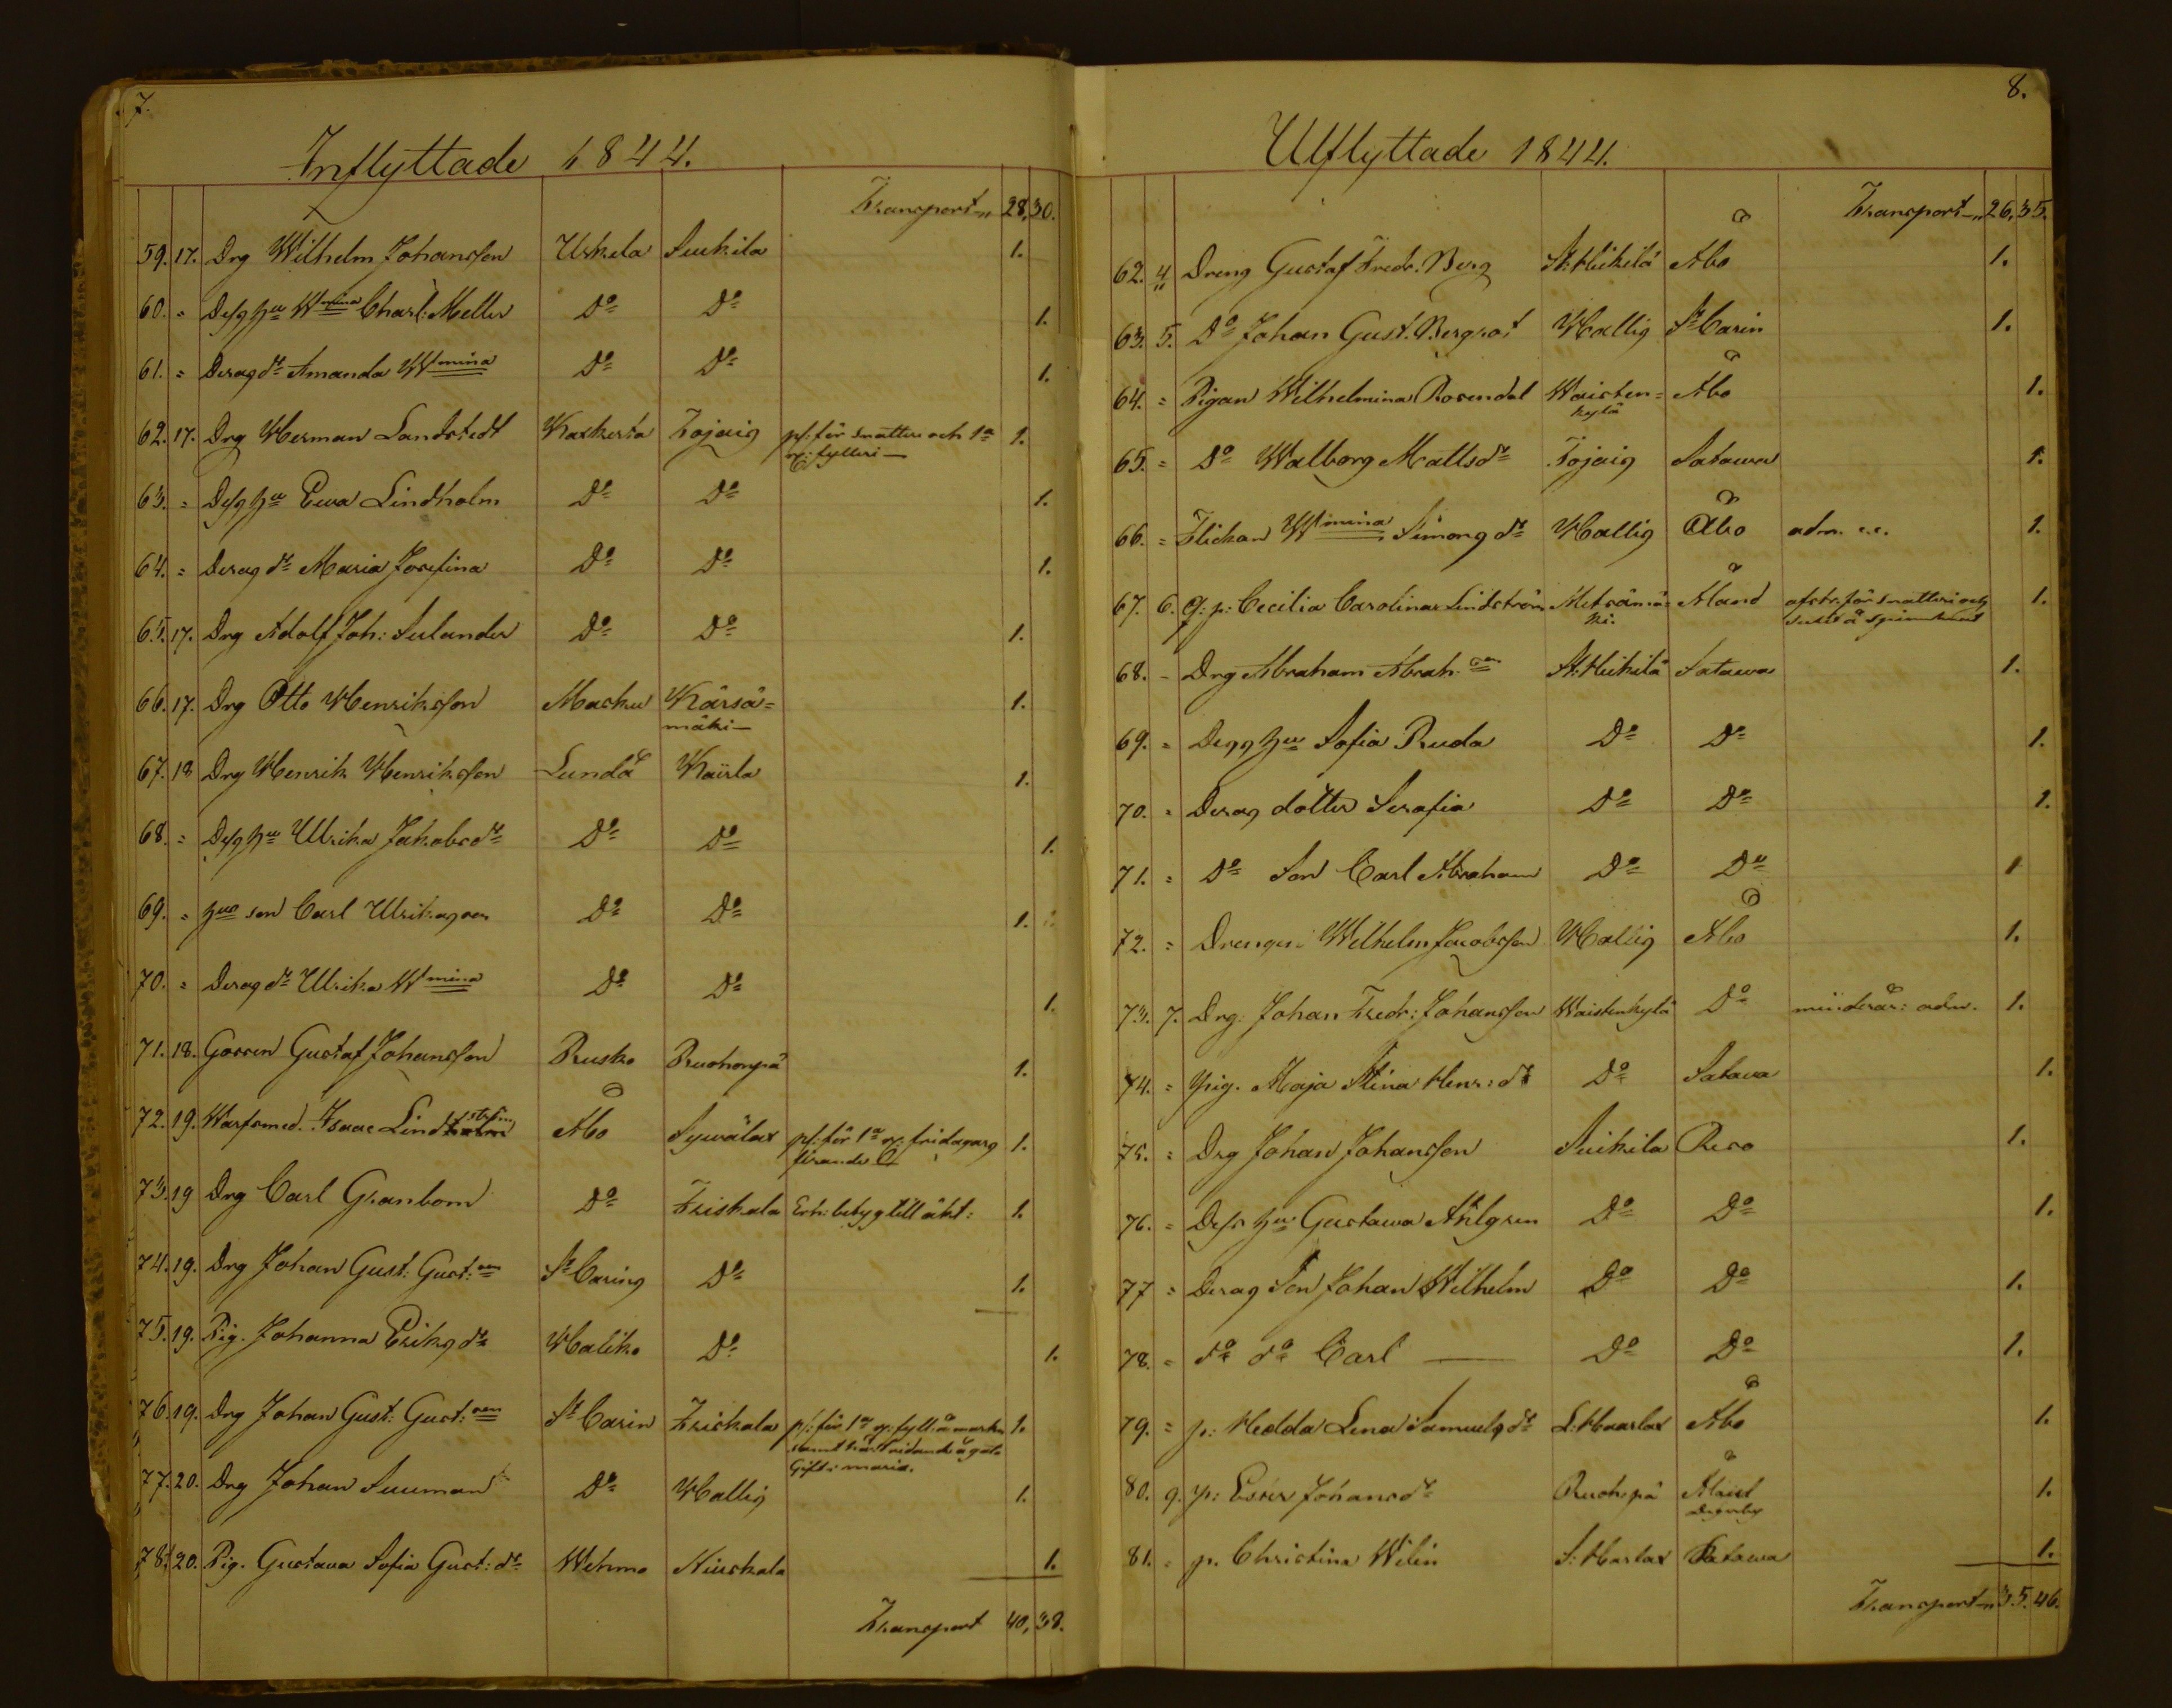 7.
Inflyttade 1844.
Transport 28, 30.
59. 17. Drg Wilhelm Johansson Uskela Suikila 1.
60. = Dess hu Wmina Charl: Meller Do Do 1.
61. = Deras dr Amanda Wmina Do Do 1.
62. 17. Drg Herman Landstedt Kaskerta Tojais pl: för snatteri och 1a
rs: fylleri — 1.
63. = Dess hu Ewa Lindholm Do Do 1.
64. = Deras dr Maria Josefina Do Do 1.
65. 17. Drg Adolf Joh: Sulander Do Do 1.
66. 17. Drg Otto Henriksson Masku Kärsä=
mäki — 1.
67. 18 Drg Henrik Henriksson Lundå Kairla 1.
68. = Dess hu Ulrika Jakobsdr Do Do 1.
69. = hus son Carl Ulrikasson Do Do 1.
70. = Deras dr Ulrika Wmina Do Do 1.
71. 18. Gossen Gustaf Johansson Rusko Ruohonpä 1.
72. 19. Warfsmed. Isaac Lindström Åbo Sywälax pl: för 1a rs:
firande 1.
73. 19 Drg Carl Granbom Do Friskala Erh: betyg till äkt: 1.
74. 19. Drg Johan Gust: Gust:son St Carins Do 1.
75. 19. Pig. Johanna Eriksdr Haliko Do 1.
76. 19. Drg Johan Gust: Gust:son St Carin Friskala pl: för 1a rs: fyll: å markn
samt ridande å gata
Gift i maria. 1.
77. 20. Drg Johan Suuman Do Hallis 1.
78. 20. Pig. Gustava Sofia Gust: dr Wehmo Niuskala 1.
Transport 40, 38.
8.
Utflyttade 1844.
Transport 26, 35.
62. 4 Dreng Gustaf Fredr. Berg St: Heikilä Åbo 1.
63. 5. Do Johan Gust. Bergrot Hallis St Carin 1.
64. = Pigan Wilhelmina Rosendal Waisten=
kylä Åbo 1.
65. = Do Walborg Mattsdr Tojais Satawa 1.
66. = Flickan Wmina Simonsdr Hallis Åbo adm. 1.
67. 6. q: p: Cecilia Carolina Lindström Metsämä=
ki. Åland afstr: för snatteri och
å spinnhuset 1.
68. - Drg Abraham Abrah.son St: Heikilä Satawa 1.
69. = Dess hu Sofia Ruda Do Do 1.
70. = Deras dotter Serafia Do Do 1.
71. = Do Son Carl Abraham Do Do 1
72. = Drengen Wilhelm Jacobsson Hallis Åbo 1.
73. 7. Drg. Johan Fredr: Johansson Waistenkylä Do minderår: adm. 1.
74. = pig. Maja Stina Henr: dr Do Satava 1.
75. = Drg Johan Johansson Suikila Reso 1.
76. = Dess hu Gustawa Ahlgren Do Do 1.
77 = Deras Son Johan Wilhelm Do Do 1.
78. = do do Carl — Do Do 1.
79. = p: Hedda Lena Samuelsdr L: Haarlax Åbo 1.
80. 9. p: Ester Johansdr Ruoh: pä Åland
Degerby 1.
81. = p. Christina Wilin S: Harlax Satawa 1.
Transport 35. 46.